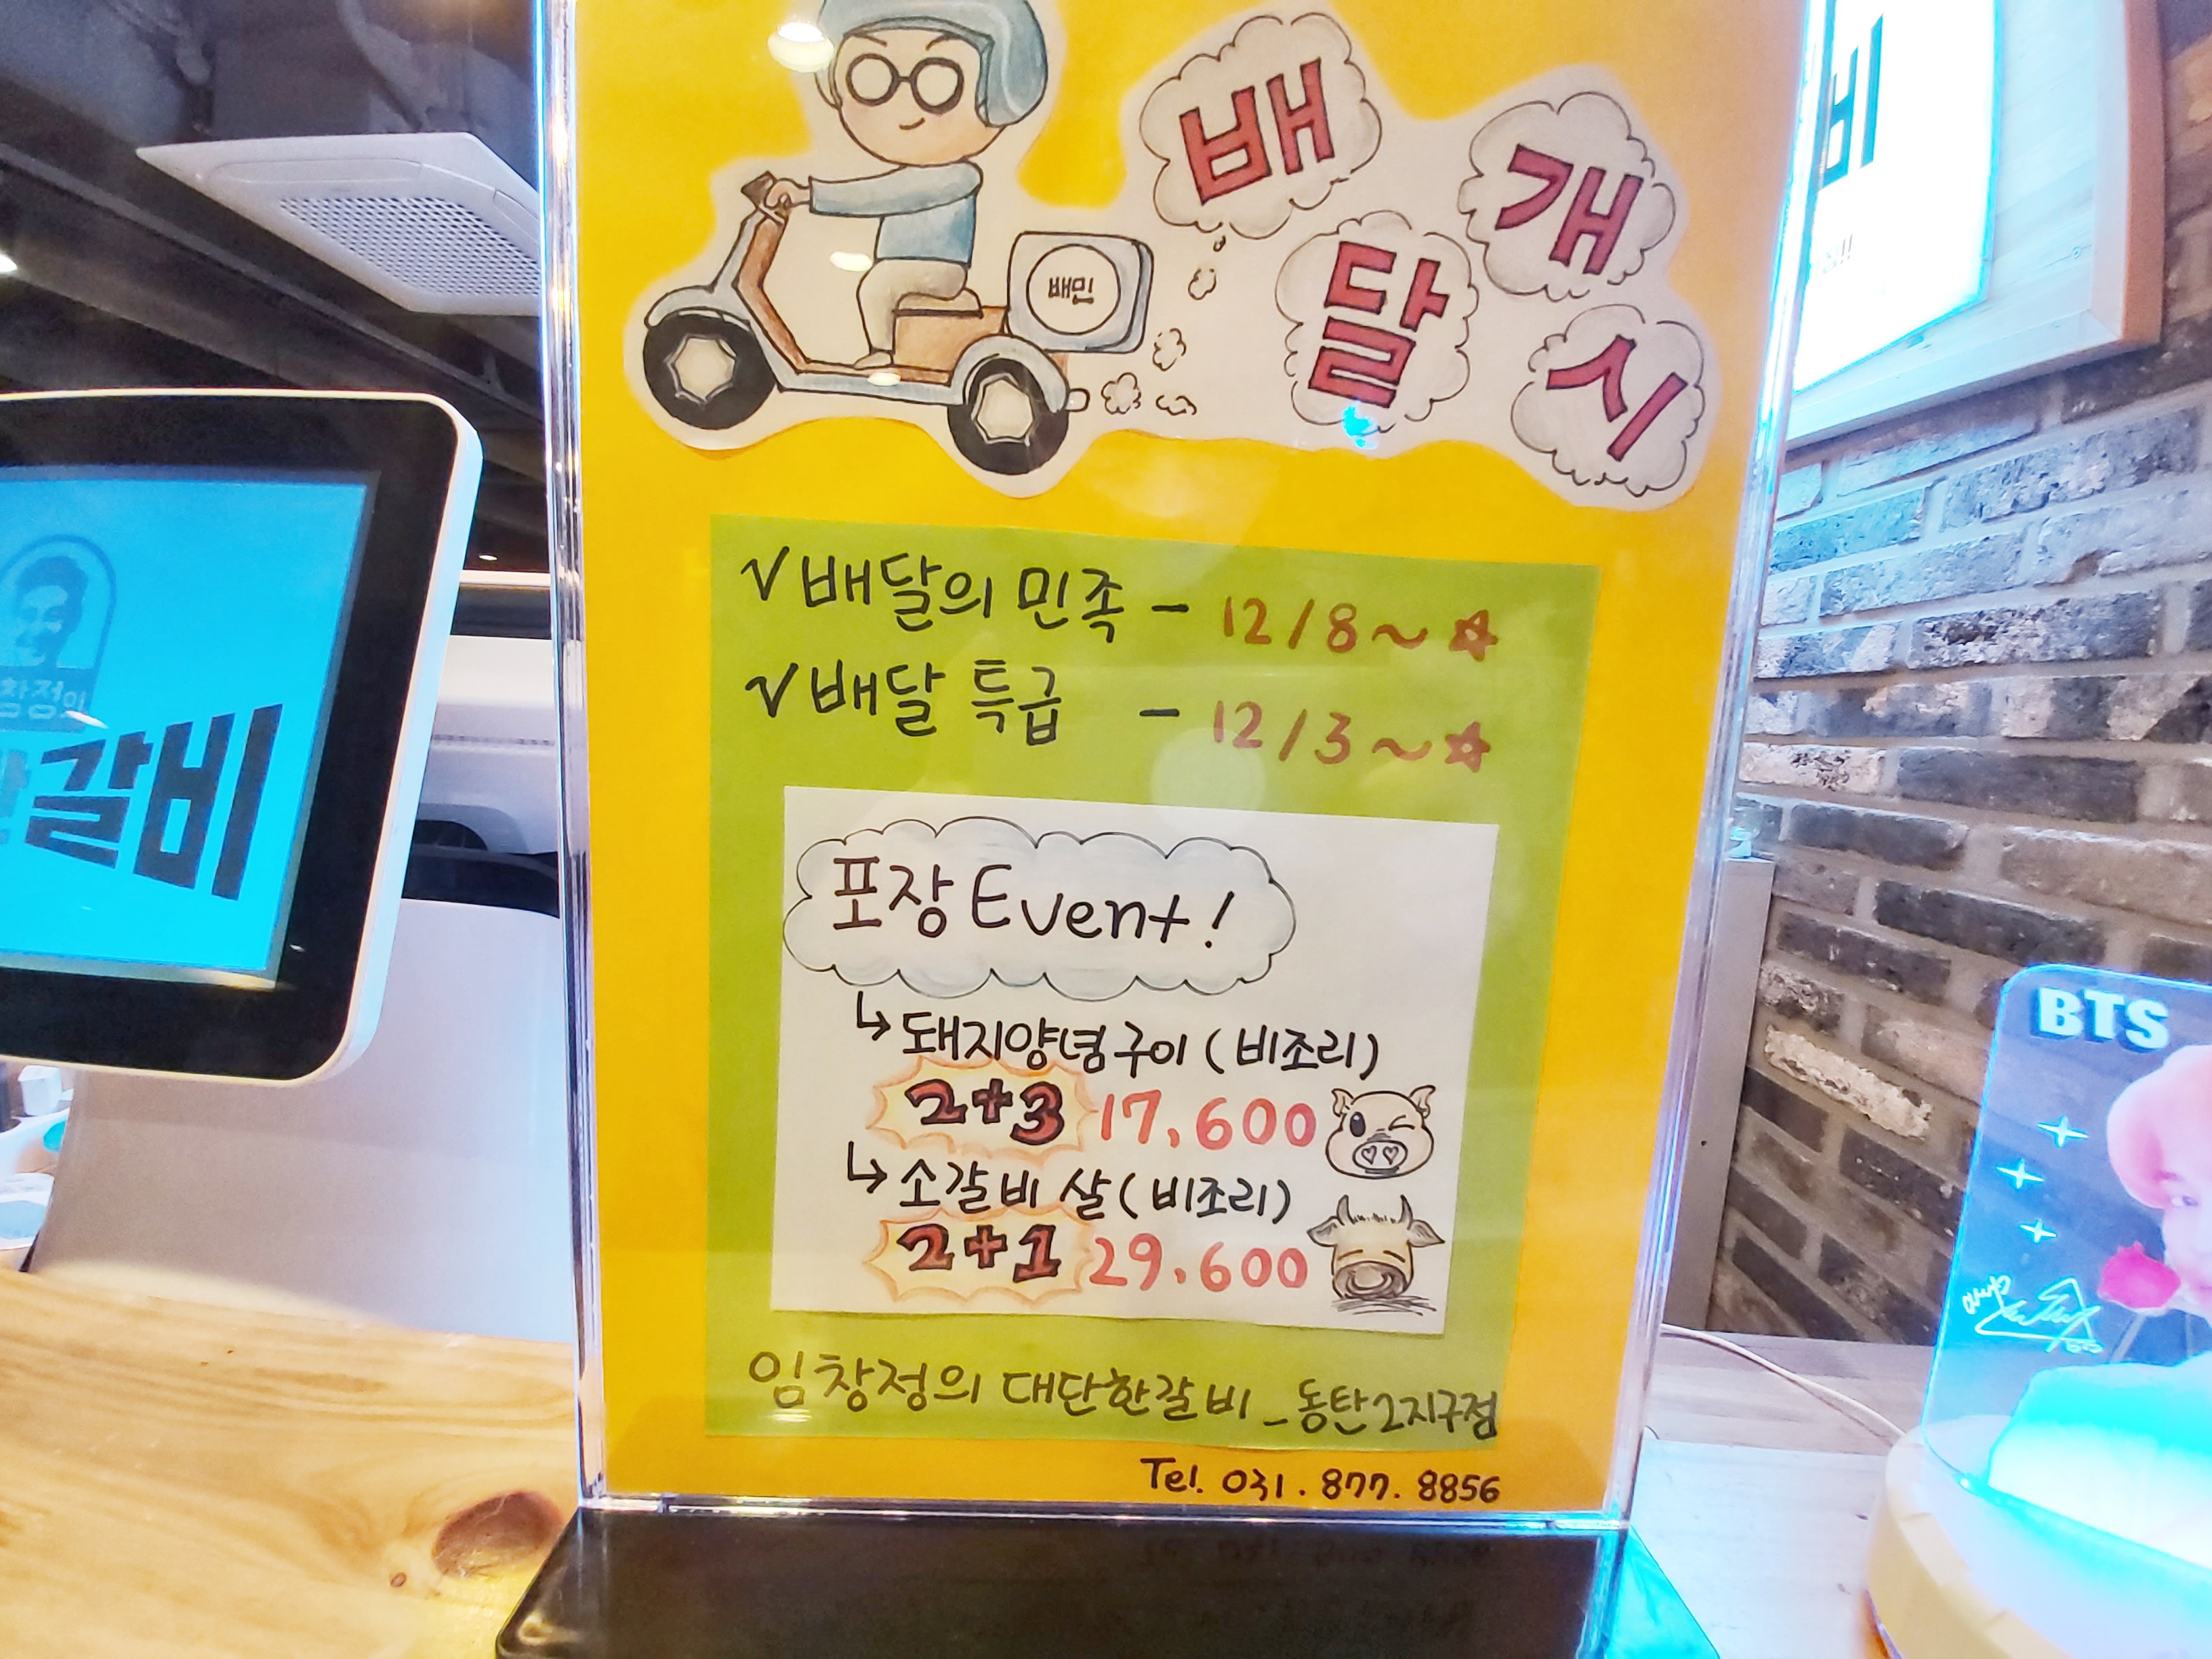 배달 개시
배민
√배달의 민족 - 12/8~☆
√배달 특급 - 12/3~☆
포장 Event!
↳돼지양념구이(비조리)
2+3 17,600
↳소갈비살(비조리)
2+1 29,600
임창정의 대단한갈비_동탄2지구점
Tel. 031. 877. 8856
창정이
갈비
비
BTS